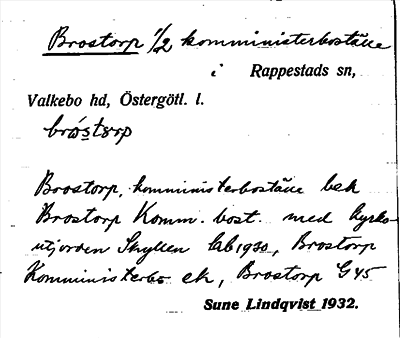 Brostorp 1/2 komministerboställe
i Rappestads sn,
Valkebo hd, Östergötl. l.
bróstɜrp
Brostorp, komministerboställe bek
Brostorp Komm. bost. med kyrko-
utjorden Skyllen Lb 1930, Brostorp
Komministerbo ek, Brostorp G45
Sune Lindqvist 1932.